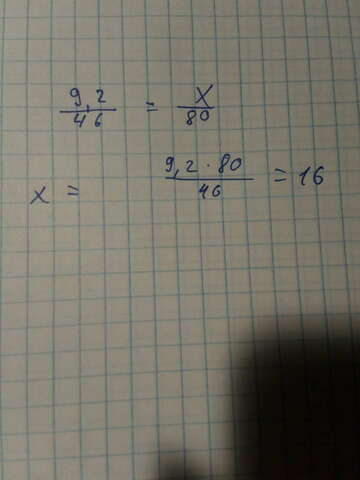 9,2/46 = X/80
x = 9,2 · 80/46 = 16